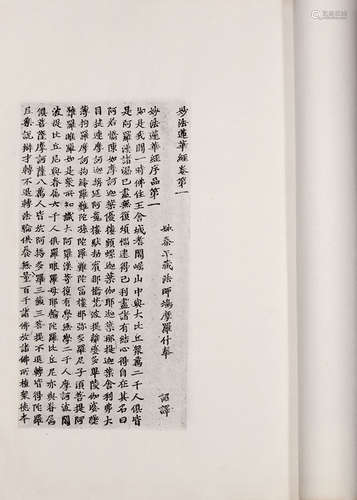 妙法蓮華經卷第一
姚秦三藏法師鳩摩羅什奉　詔譯
妙法蓮華經序品第一
如是我聞一時佛住王舍城耆闍崛山中與大比丘眾萬二千人俱皆
是阿羅漢諸漏已盡無復煩惱逮得己利盡諸有結心得自在其名曰
阿若憍陳如摩訶迦葉優樓頻螺迦葉伽耶迦葉那提迦葉舍利弗大
目揵連摩訶迦旃延阿㝹樓馱劫賓那憍梵波提離婆多畢陵伽婆蹉
薄拘羅摩訶拘絺羅難陀孫陀羅難陀富樓那彌多羅尼子須菩提阿
難羅睺羅如是眾所知識大阿羅漢等復有學無學二千人摩訶波闍
波提比丘尼與眷屬六千人俱羅睺羅母耶輸陀羅比丘尼亦與眷屬
俱菩薩摩訶薩八萬人皆於阿耨多羅三藐三菩提不退轉皆得陀羅
尼樂說辯才轉不退轉法輪供養無量百千諸佛於諸佛所植眾德本